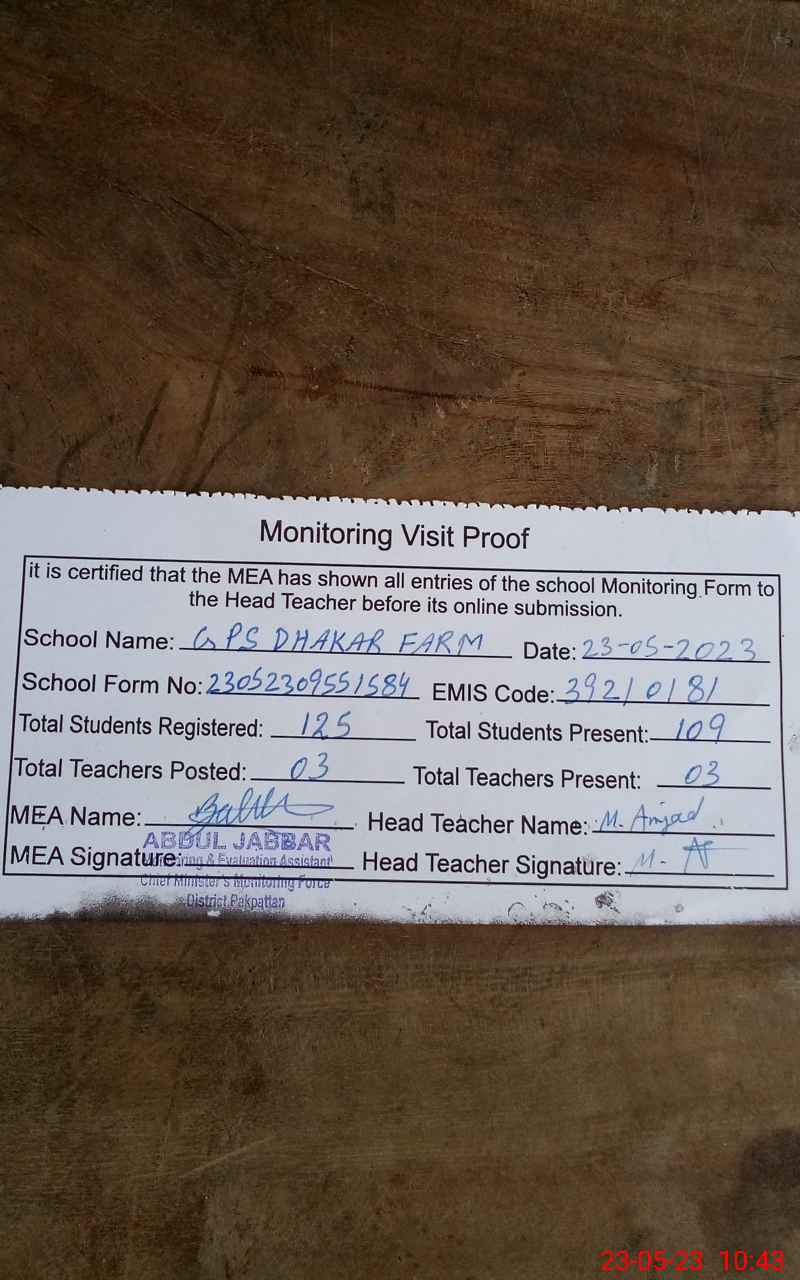 Monitoring Visit Proof
it is certified that the MEA has shown all entries of the school Monitoring Form to
the Head Teacher before its online submission.
School Name: GPS DHAKAR FARM Date: 23-05-2023
School Form No: 23052309551584 EMIS Code: 39210181
Total Students Registered: 125 Total Students Present: 109
Total Teachers Posted: 03 Total Teachers Present: 03
MEA Name: Head Teacher Name: M. Amjad
ABDUL JABBAR
MEA Signature: Head Teacher Signature: M.
& Evaluation Assistant
Chief Minister's Monitoring Force
District Pakpattan
23-05-23 10:43